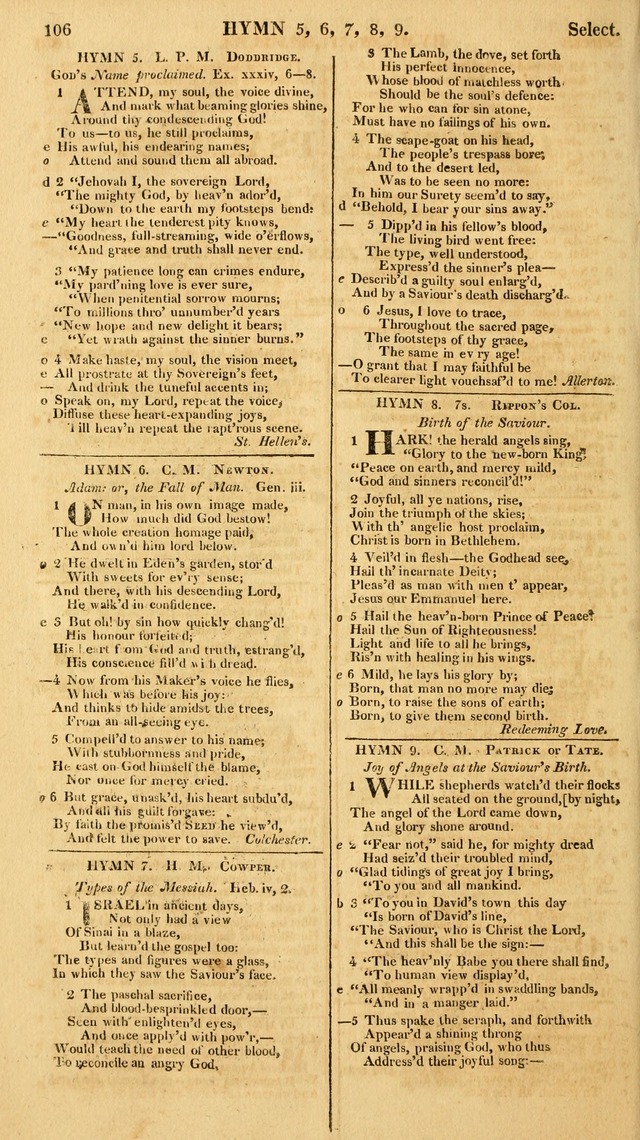 106 HYMN 5, 6, 7, 8, 9. Select.
HYMN 5. L. P. M. DODDRIDGE.
GOD'S Name proclaimed. Ex. xxxiv, 6—8.
1 ATTEND, my soul, the voice divine,
And mark what beaming glories shine,
Around thy condescending God!
To us—to us, he still proclaims,
e His awful, his endearing names;
o Attend and sound them all abroad.
d 2 “Jehovah I, the sovereign Lord,
“The mighty God, by heav'n ador'd,
“Down to the earth my footsteps bend:
e “My heart the tenderest pity knows,
—“Goodness, full-streaming, wide o'erflows,
“And grace and truth shall never end.
3 “My patience long can crimes endure,
“My pard'ning love is ever sure,
“When penitential sorrow mourns;
“To millions thro' unnumber'd years
“New hope and new delight it bears;
e “Yet wrath against the sinner burns.”
o 4 Make haste, my soul, the vision meet,
e All prostrate at thy Sovereign's feet,
— And drink the tuneful accents in;
o Speak on, my Lord, repeat the voice,
Diffuse these heart-expanding joys,
Till heav'n repeat the rapt'rous scene.
St. Hellen's.
HYMN 6. C. M. NEWTON.
Adam: or, the Fall of Man. Gen. iii.
1 ON man, in his own image made,
How much did God bestow!
The whole creation homage paid,
And own'd him lord below.
o 2 He dwelt in Eden's garden, stor'd
With sweets for ev'ry sense;
And there, with his descending Lord,
He walk'd in confidence.
e 3 But oh! by sin how quickly chang'd!
His honour forfeited;
His heart from God and truth, estrang'd,
His conscience fill'd with dread.
—4 Now from his Maker's voice he flies,
Which was before his joy:
And thinks to hide amidst the trees,
From an all-seeing eye.
5 Compell'd to answer to his name;
With stubbornness and pride,
He cast on God himself the blame,
Nor once for mercy cried.
o 6 But grace, unask'd, his heart subdu'd,
And all his guilt forgave:
By faith the promis'd SEED he view'd,
And felt the power to save. Colchester.
HYMN 7. H M. COWPER.
Types of the Messiah. Heb. iv, 2.
1 ISRAEL in ancient days,
Not only had a view
Of Sinai in a blaze,
But learn'd the gospel too:
The types and figures were a glass,
In which they saw the Saviour's face.
2 The paschal sacrifice,
And blood-besprinkled door,—
Seen with enlighten'd eyes,
And once apply'd with pow'r,—
Would teach the need of other blood,
To reconcile an angry God.
3 The Lamb, the dove, set forth
His perfect innocence,
Whose blood of matchless worth
Should be the soul's defence:
For he who can for sin atone,
Must have no failings of his own.
4 The scape-goat on his head,
The people's trespass bore;
And to the desert led,
Was to be seen no more:
In him our Surety seem'd to say,
d “Behold, I bear your sins away.”
— 5 Dipp'd in his fellow's blood,
The living bird went free:
The type, well understood,
Express'd the sinner's plea—
e Describ'd a guilty soul enlarg'd,
And by a Saviour's death discharg'd.
o 6 Jesus, I love to trace,
Throughout the sacred page,
The footsteps of thy grace,
The same in ev'ry age!
—O grant that I may faithful be
To clearer light vouchsaf'd to me! Allerton.
HYMN 8. 7s. RIPPON'S COL.
Birth of the Saviour.
1 HARK! the herald angels sing,
“Glory to the new-born King!
“Peace on earth, and mercy mild,
“God and sinners reconcil'd!”
2 Joyful, all ye nations, rise,
Join the triumph of the skies;
With th' angelic host proclaim,
Christ is born in Bethlehem.
4 Veil'd in flesh—the Godhead see,
Hail th' incarnate Deity;
Pleas'd as man with men t' appear,
Jesus our Emmanuel here.
o 5 Hail the heav'n-born Prince of Peace!
Hail the Sun of Righteousness!
Light and life to all he brings,
Ris'n with healing in his wings.
e 6 Mild, he lays his glory by;
Born, that no more may die;
o Born, to raise the sons of earth;
Born, to give them second birth.
Redeeming Love.
HYMN 9. C. M. PATRICK OR TATE.
Joy of Angels at the Saviour's Birth.
1 WHILE shepherds watch'd their flocks
All seated on the ground, [by night,
The angel of the Lord came down,
And glory shone around.
e 2 “Fear not,” said he, for mighty dread
Had seiz'd their troubled mind,
o “Glad tidings of great joy I bring,
“To you and all mankind.
b 3 “To you in David's town this day
“Is born of David's line,
“The Saviour, who is Christ the Lord,
“And this shall be the sign:—
4 “The heav'nly Babe you there shall find,
“To human view display'd,
e “All meanly wrapp'd in swaddling bands,
“And in a manger laid.”
—5 Thus spake the seraph, and forthwith
Appear'd a shining throng
Of angels, praising God, who thus
Address'd their joyful song:—